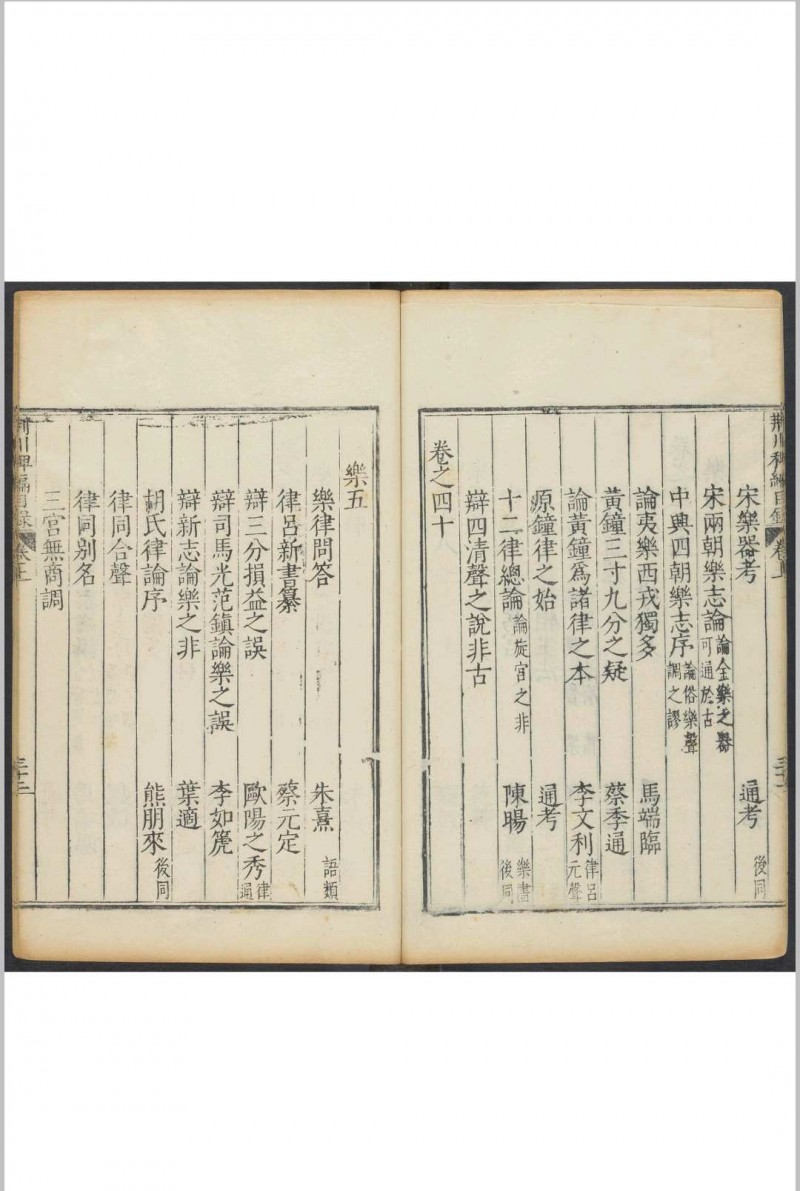 荆川稗編目錄 卷上
宋樂器考 通考 後同
宋兩朝樂志論 論金樂之器可通於古
中興四朝樂志序 論俗樂聲調之謬
論夷樂西戎獨多 馬端臨
黃鐘三寸九分之疑 蔡季通
論黃鐘爲諸律之本 李文利 律呂元聲
原鐘律之始 通考
十二律總論 論旋宮之非 陳暘 樂書後同
辯四清聲之說非古
卷之四十
樂五
樂律問答 朱熹 語類
律呂新書纂 蔡元定
辯三分損益之誤 歐陽之秀 律通
辯司馬光范鎮論樂之誤 李如箎
辯新志論樂之非 葉適
胡氏律論序 熊朋來 後同
律同合聲
律同別名
三宮無商調
荆川稗編目錄 卷上